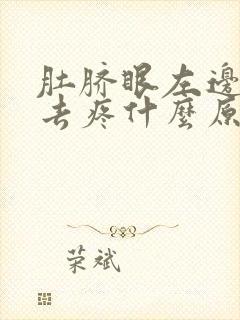 肚脐眼左邊
去疼什麼原
荣斌